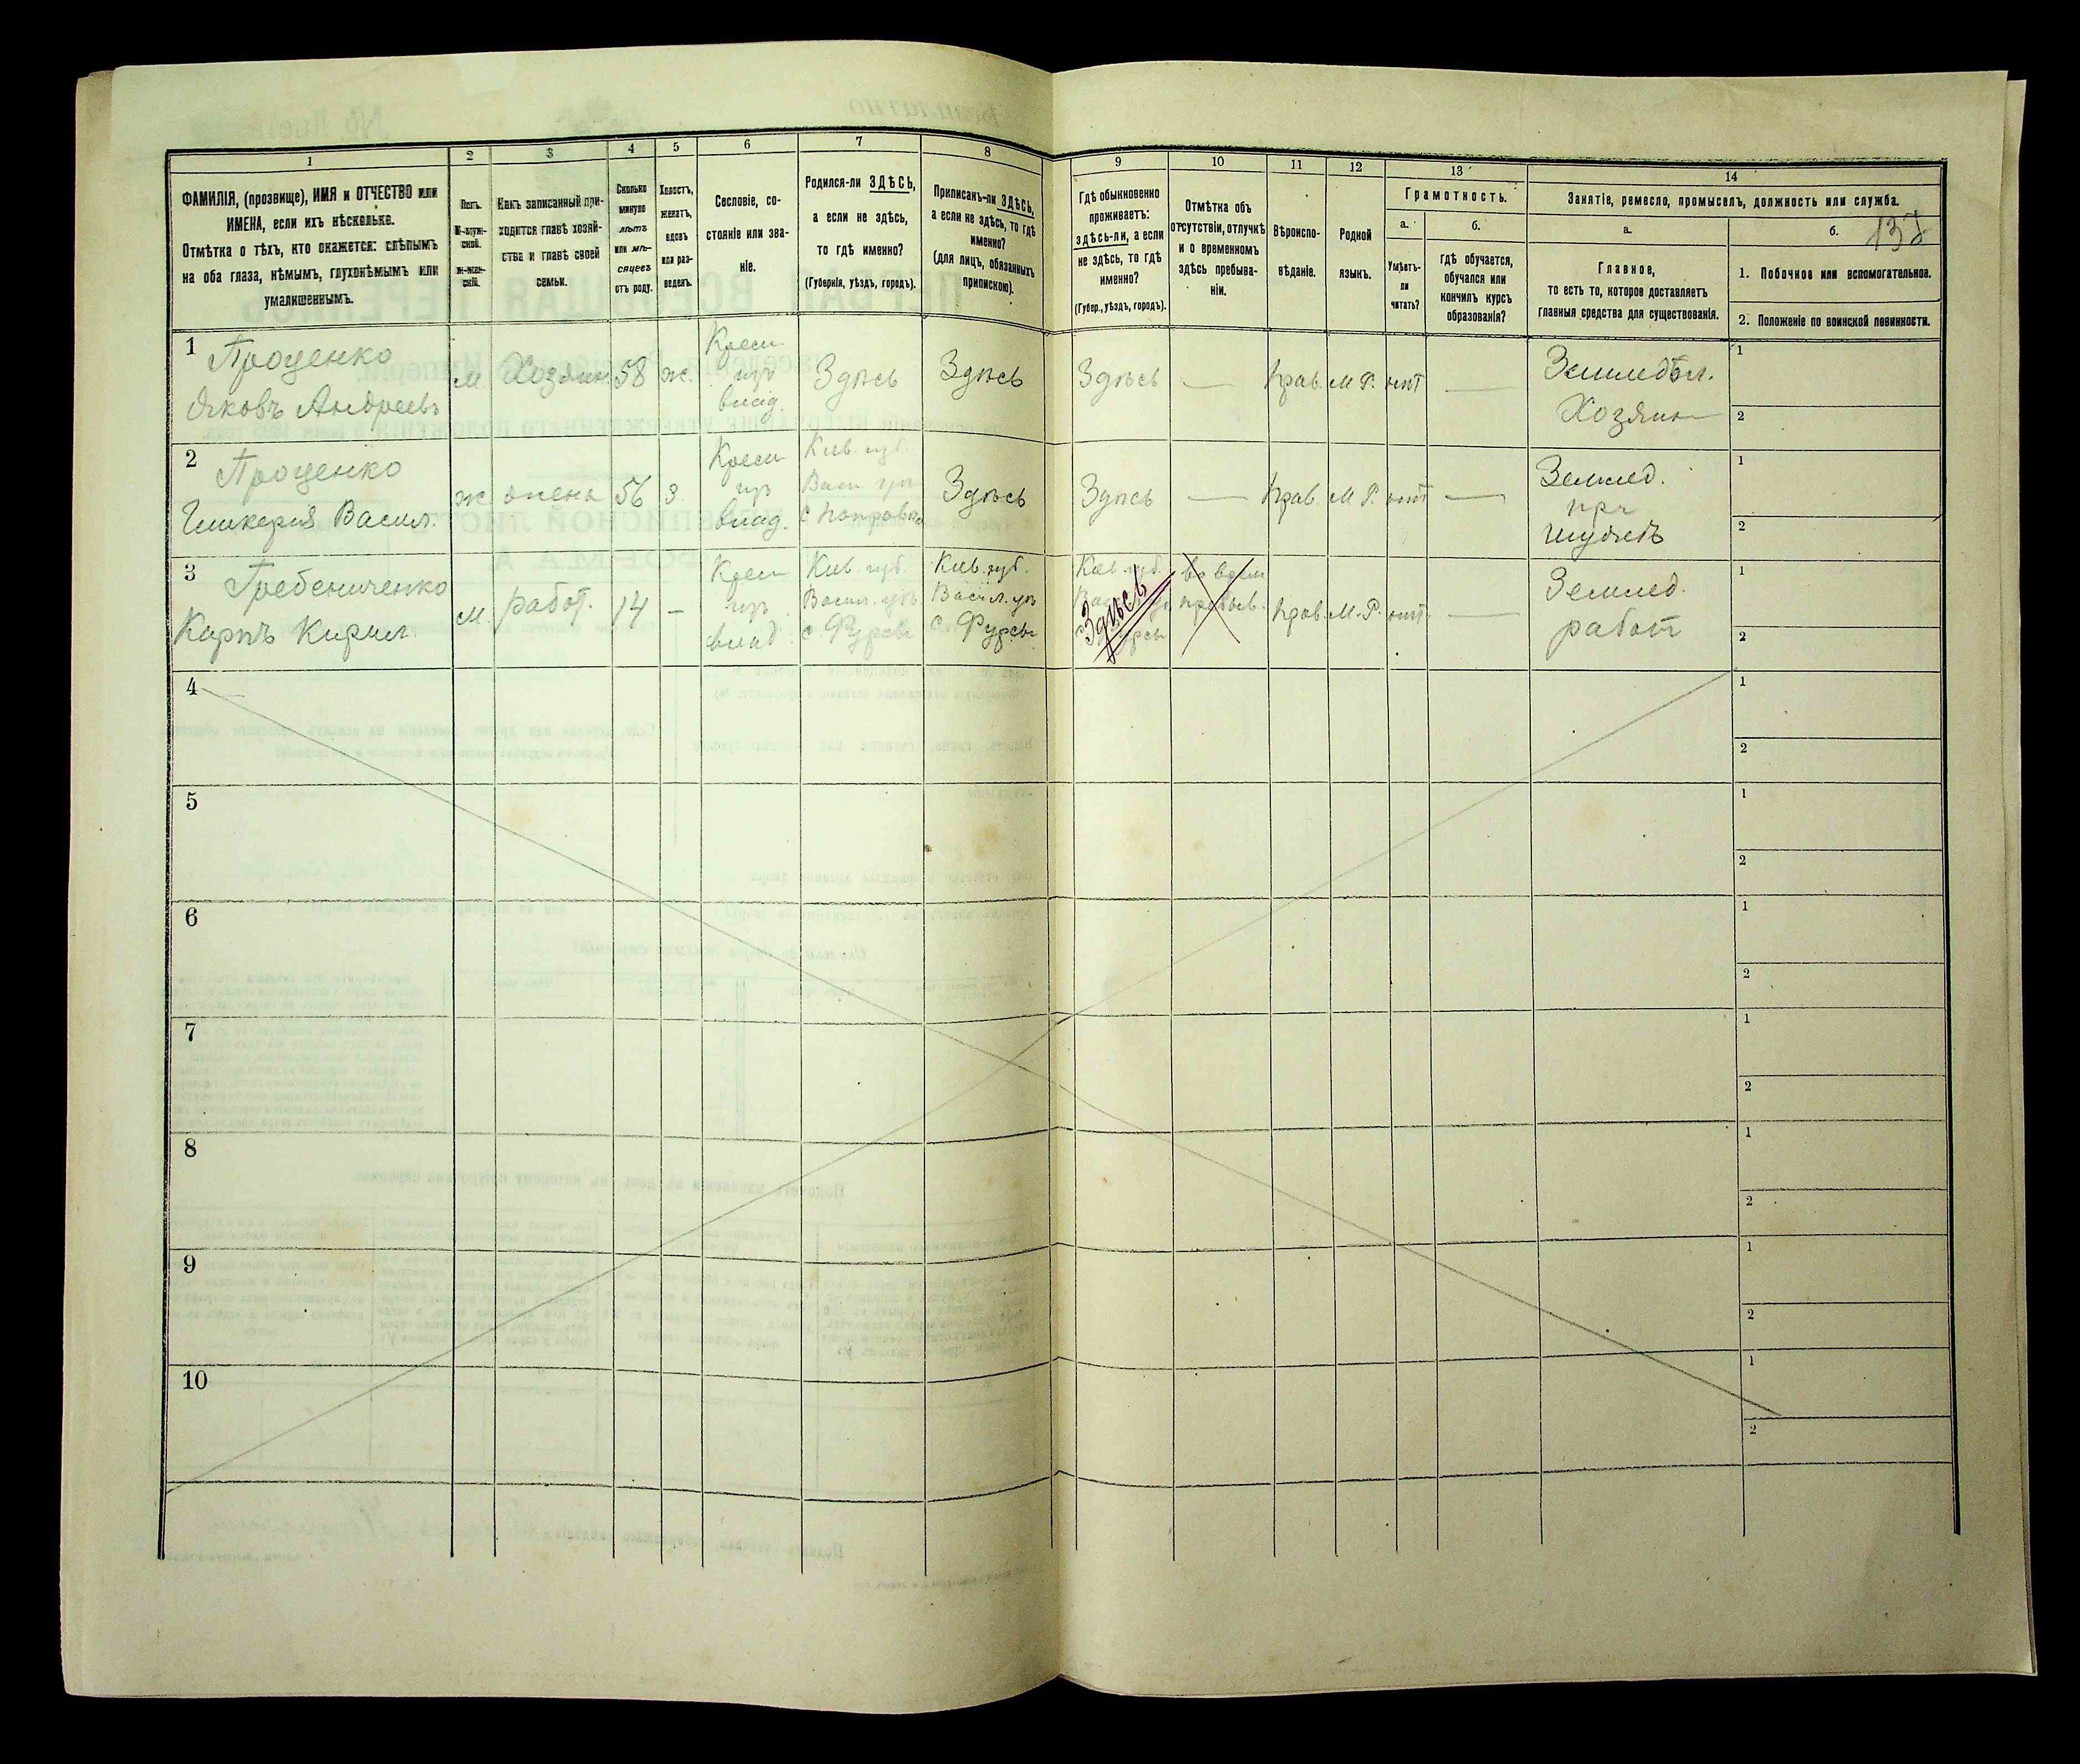 1
2
3
4
5
6
7
8
9
10
11
12
13
14
ФАМИЛІЯ, (прозвище), ИМЯ и ОТЧЕСТВО или
ИМЕНА, если ихъ нѣсколько.
Отмѣтка о тѣхъ, кто окажется: слѣпымъ
на оба глаза, нѣмымъ, глухонѣмымъ или
умалишеннымъ.
Полъ.
М-муж-
ской.
Ж-жен-
скій.
Какъ записанный при-
ходится главѣ хозяй-
ства и главѣ своей
семьи.
Сколько
минуло
лѣтъ
или мѣ-
сяцевъ
отъ роду.
Холостъ,
женатъ,
вдовъ
или раз-
веденъ.
Сословіе, со-
стояніе или зва-
ніе.
Родился-ли ЗДѢСЬ,
а если не здѣсь,
то гдѣ именно?
(Губернія, уѣздъ, городъ).
Приписанъ-ли ЗДѢСЬ,
а если не здѣсь, то гдѣ
именно?
(для лицъ, обязанныхъ
припискою).
Гдѣ обыкновенно
проживаетъ:
здѣсь-ли, а если
не здѣсь, то гдѣ
именно?
(Губер., уѣздъ, городъ).
Отмѣтка объ
отсутствіи, отлучкѣ
и о временномъ
здѣсь пребыва-
ніи.
Вѣроиспо-
вѣданіе.
Родной
языкъ.
Грамотность.
а.
Умѣетъ-
ли
читать?
б.
гдѣ обучается,
обучался или
кончилъ курсъ
образованія?
Занятіе, ремесло, промыселъ, должность или служба.
а.
Главное,
то есть то, которое доставляетъ
главныя средства для существованія.
б.
137
1. Побочное или вспомогательное.
2. Положеніе по воинской повинности.
1
Проценко
Яковъ Андреевъ
м.
Хозяин
58
ж.
Крест
изъ
влад.
Здѣсь
Здѣсь
Здѣсь
—
Прав.
М. Р.
нѣт
—
Земледѣл.
Хозяин
1
2
2
Проценко
Гликерія Васил.
ж
жена
56
з.
Крест
изъ
влад.
Кив. губ.
Васи уѣз
с Попровка
Здѣсь
Здѣсь
—
Прав.
М. Р.
нѣт
—
Землед.
при
мужѣ
1
2
3
Гребениченко
Карпъ Кирил.
м.
работ.
14
—
Крест
изъ
влад.
Кив. губ.
Васил. уѣз
с. Фурсы
Кив. губ.
Васил. уѣз
с. Фурсы
Кив. губ.
Здѣсь
Прав.
М. Р.
нѣт
—
Землед.
работ
1
2
4
1
2
5
1
2
6
1
2
7
1
2
8
1
2
9
1
2
10
1
2